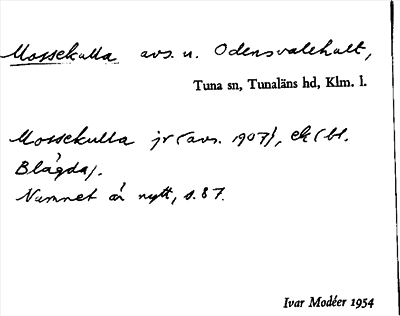 Mossekulla avs. u. Odensvalehult,
Tuna sn, Tunaläns hd, Klm. l.
Mossekulla jr (avs. 1907), ek (bl.
Blågda).
Namnet är nytt, s. 87.
Ivar Modéer 1954